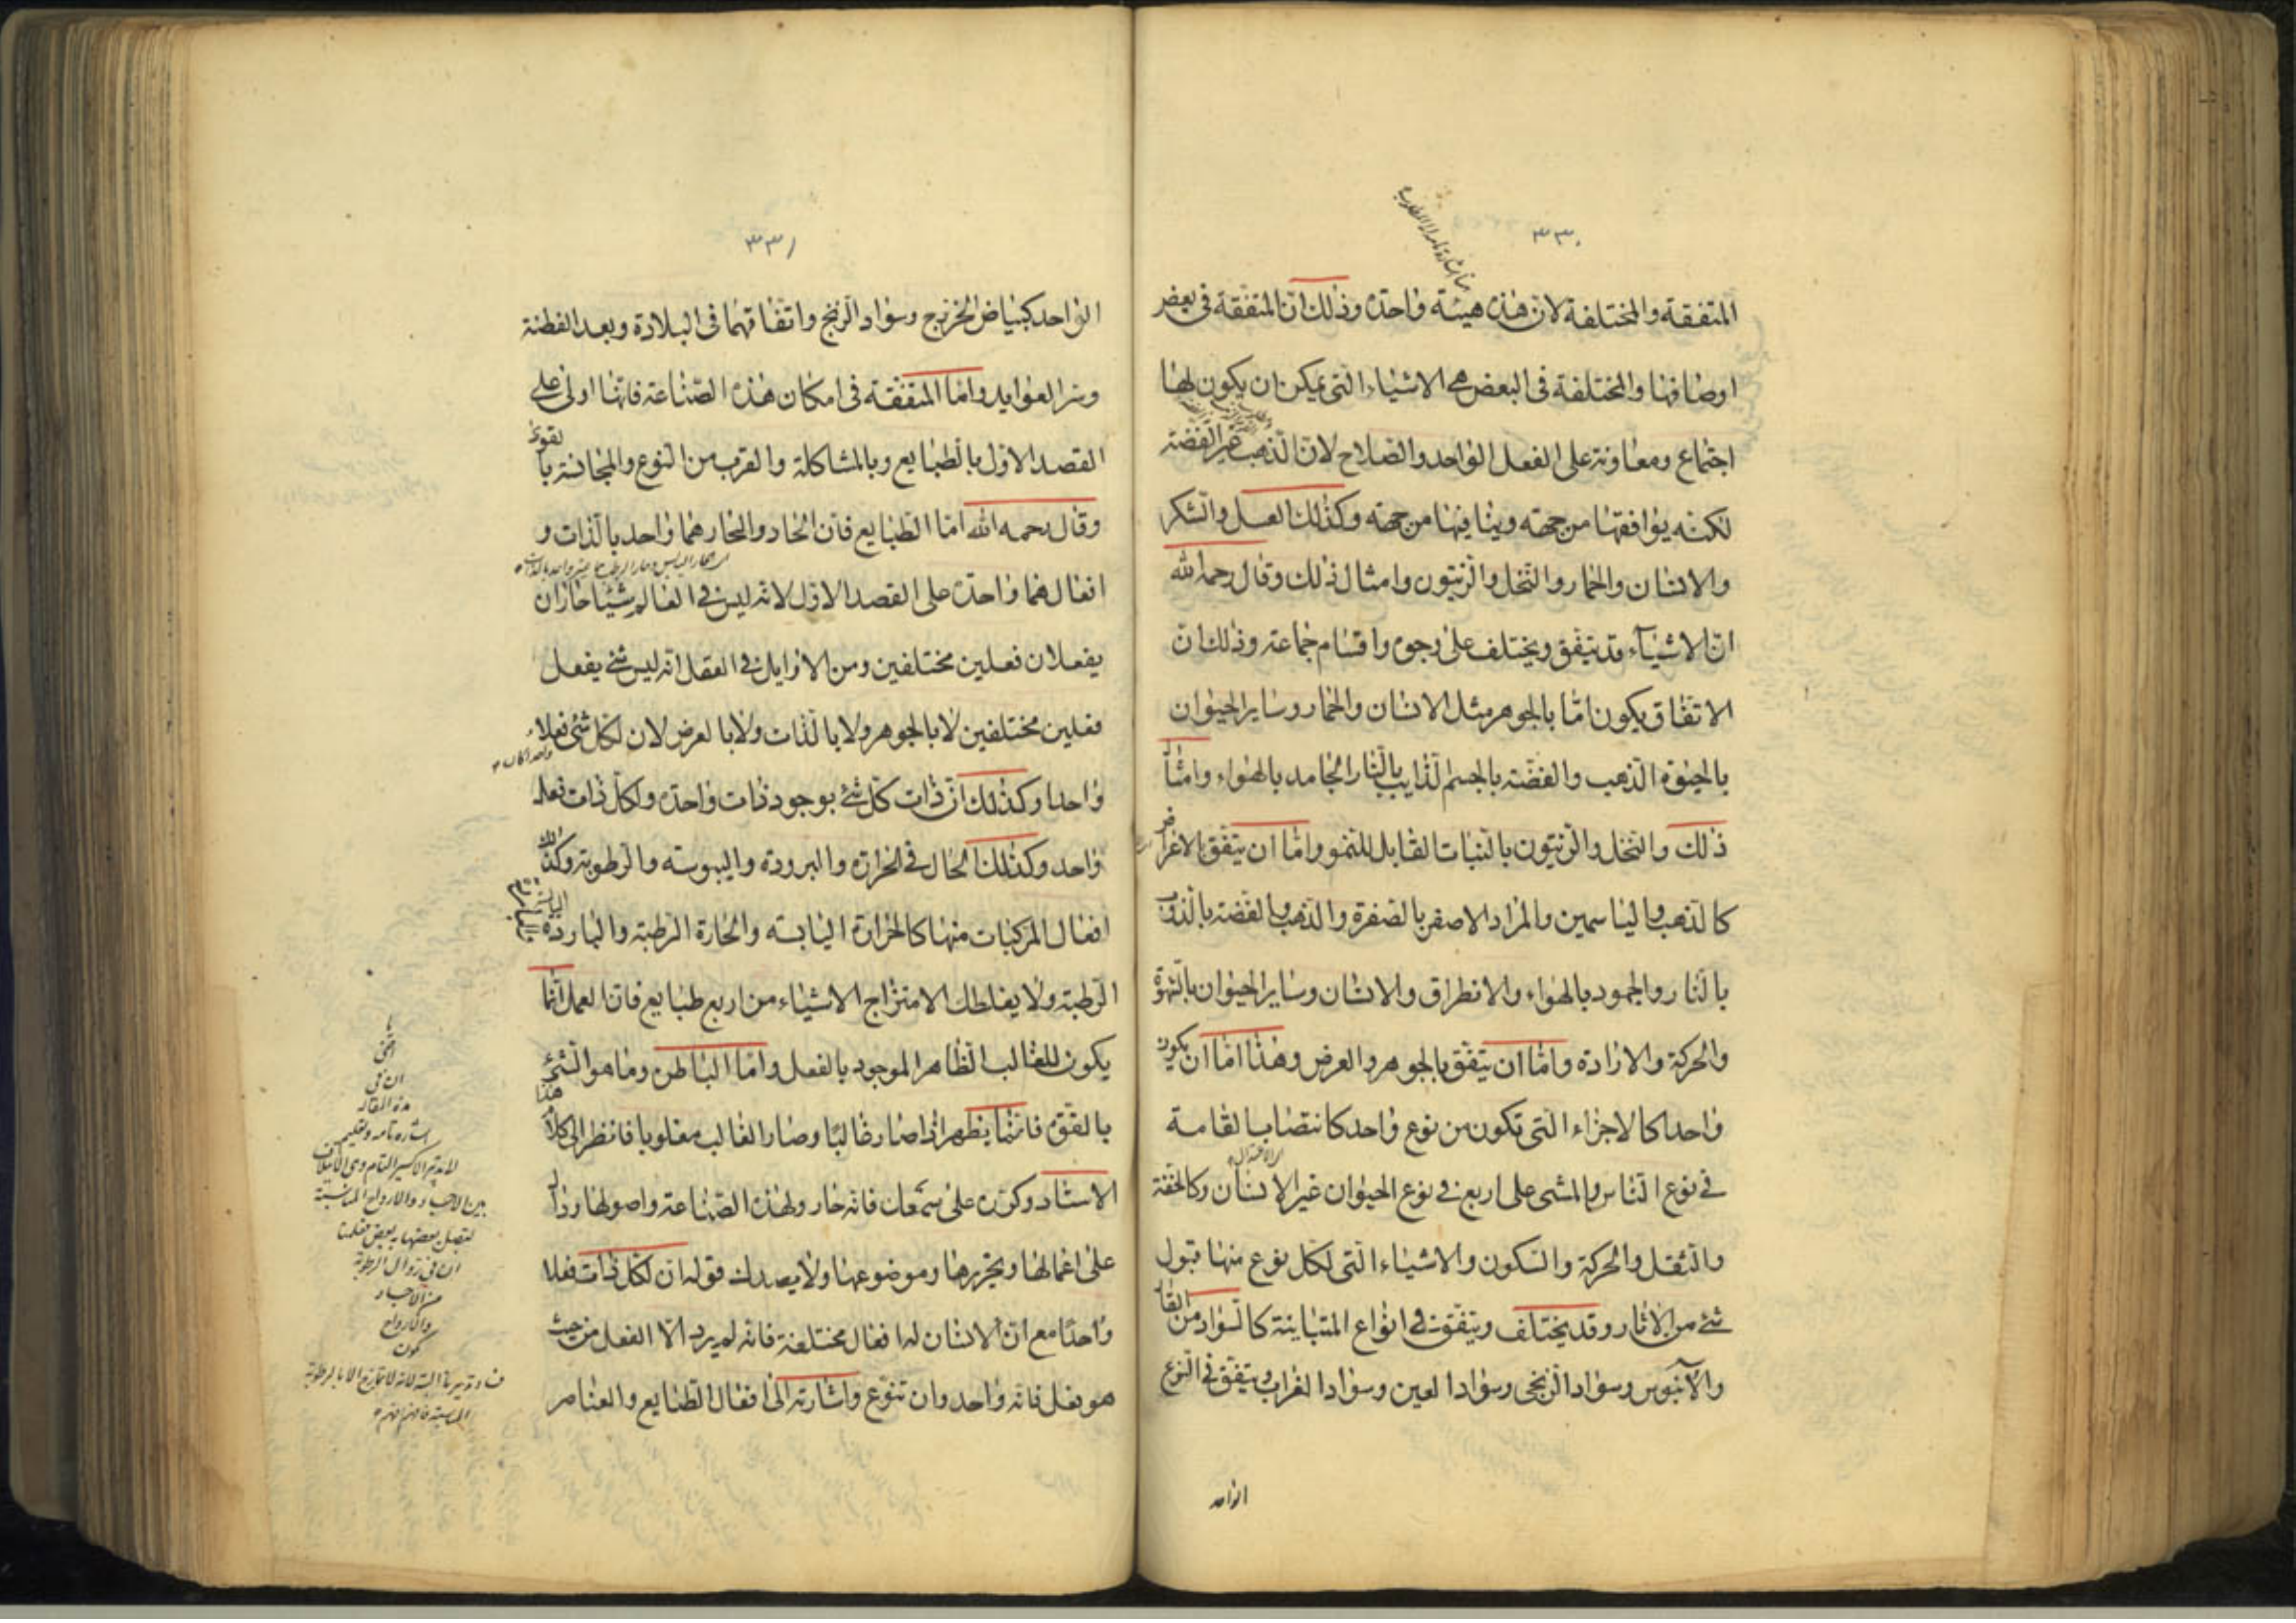 ٣٣٠
المتفقة والمختلفة لان هذه هيئة واحدة وذلك ان المتفقة فى بعض
اوصافها والمختلفة فى البعض هى الاشياء التى يمكن ان يكون لها
اجتماع ومعاونة على الفعل الواحد والصلاح لان الذهب غير الفضة
لكنه يوافقها من جهة وينافيها من جهة وكذلك العسل والسكر
والانسان والحمار والنخل والزيتون وامثال ذلك وقال رحمه الله
ان الاشياء قد يتفق ويختلف على وجوه واقسام جماعة وذلك ان
الاتفاق يكون اما بالجوهر مثل الانسان والحمار وساير الحيوان
بالحيوة الذهب والفضة بالجسم الذايب بالنار الجامد بالهواء وامثال
ذلك والنخل والزيتون بالنبات القابل للنمو واما ان يتفق بالاعراض
كالذهب والياسمين والمرار الاصفر بالصفرة والذهب والفضة بالذوب
بالنار والجمود بالهواء والانطراق والانسان وساير الحيوان بالشهوة
والحركة والارادة واما ان يتفق بالجوهر والعرض وهذا اما ان يكون
واحدا كالاجزاء التى تكون من نوع واحد كانتصاب القامة
فى نوع الناس والمشى على اربع فى نوع الحيوان غير الانسان وكالخفة
والثقل والحركة والسكون والاشياء التى لكل نوع منها قبول
شئ من الاثار وقد يختلف ويتفق فى انواع المتباينة كالسواد من القار
والآبنوس وسواد الزنجى وسواد العين وسواد الغراب ويتفق فى النوع
الواحد
٣٣١
الواحد كبياض الخزرج وسواد الزنج واتفاقهما فى البلادة وبعد الفطنة
وشر العوايد واما المتفقة فى امكان هذه الصناعة فانها اولى على
القصد الاول بالطبايع وبالمشاكلة والقرب من النوع والمجانسة بالقوة
وقال رحمه الله اما الطبايع فان الحار والحار هما واحد بالذات و
افعالهما واحدة على القصد الاول لانه ليس فى العالم شيئا حاران
يفعلان فعلين مختلفين ومن الاوايل فى العقل انه ليس شئ يفعل
فعلين مختلفين لا بالجوهر ولا بالذات ولا بالعرض لان لكل شئ فعلا
واحدا وكذلك ان ذات كل شئ بوجود ذات واحدة ولكل ذات فعل
واحد وكذلك الحال فى الحرارة والبرودة واليبوسة والرطوبة وكذلك
افعال المركبات منها كالحرارة اليابسة والحارة الرطبة والباردة
الرطبة ولا يغلطك الامتزاج الاشياء من اربع طبايع فان العمل انما
يكون للغالب الظاهر الموجود بالفعل واما الباطن وما هو الشئ
بالقوة فانما يظهر اذا صار غالبا وصار الغالب مغلوبا فانظر الى كلام هذا
الاستاد وكرره على سمعك فانه حار ولهذه الصناعة واصولها ودال
على اعمالها وتحريرها وموضوعها ولا يصدك قوله ان لكل ذات فعلا
واحدا مع ان الانسان له افعال مختلفة فانه لم يرد الا الفعل من حيث
هو فعل فانه واحد وان تنوع واشارته الى افعال الطبايع والعناصر
يا
اخى
ان فى
هذه المقالة
اشارة تامة وتعليم
بين الاجساد والارواح المناسبة
ليتصل بعضها ببعض
ان فى زوال الرطوبة
من الاجساد
والارواح